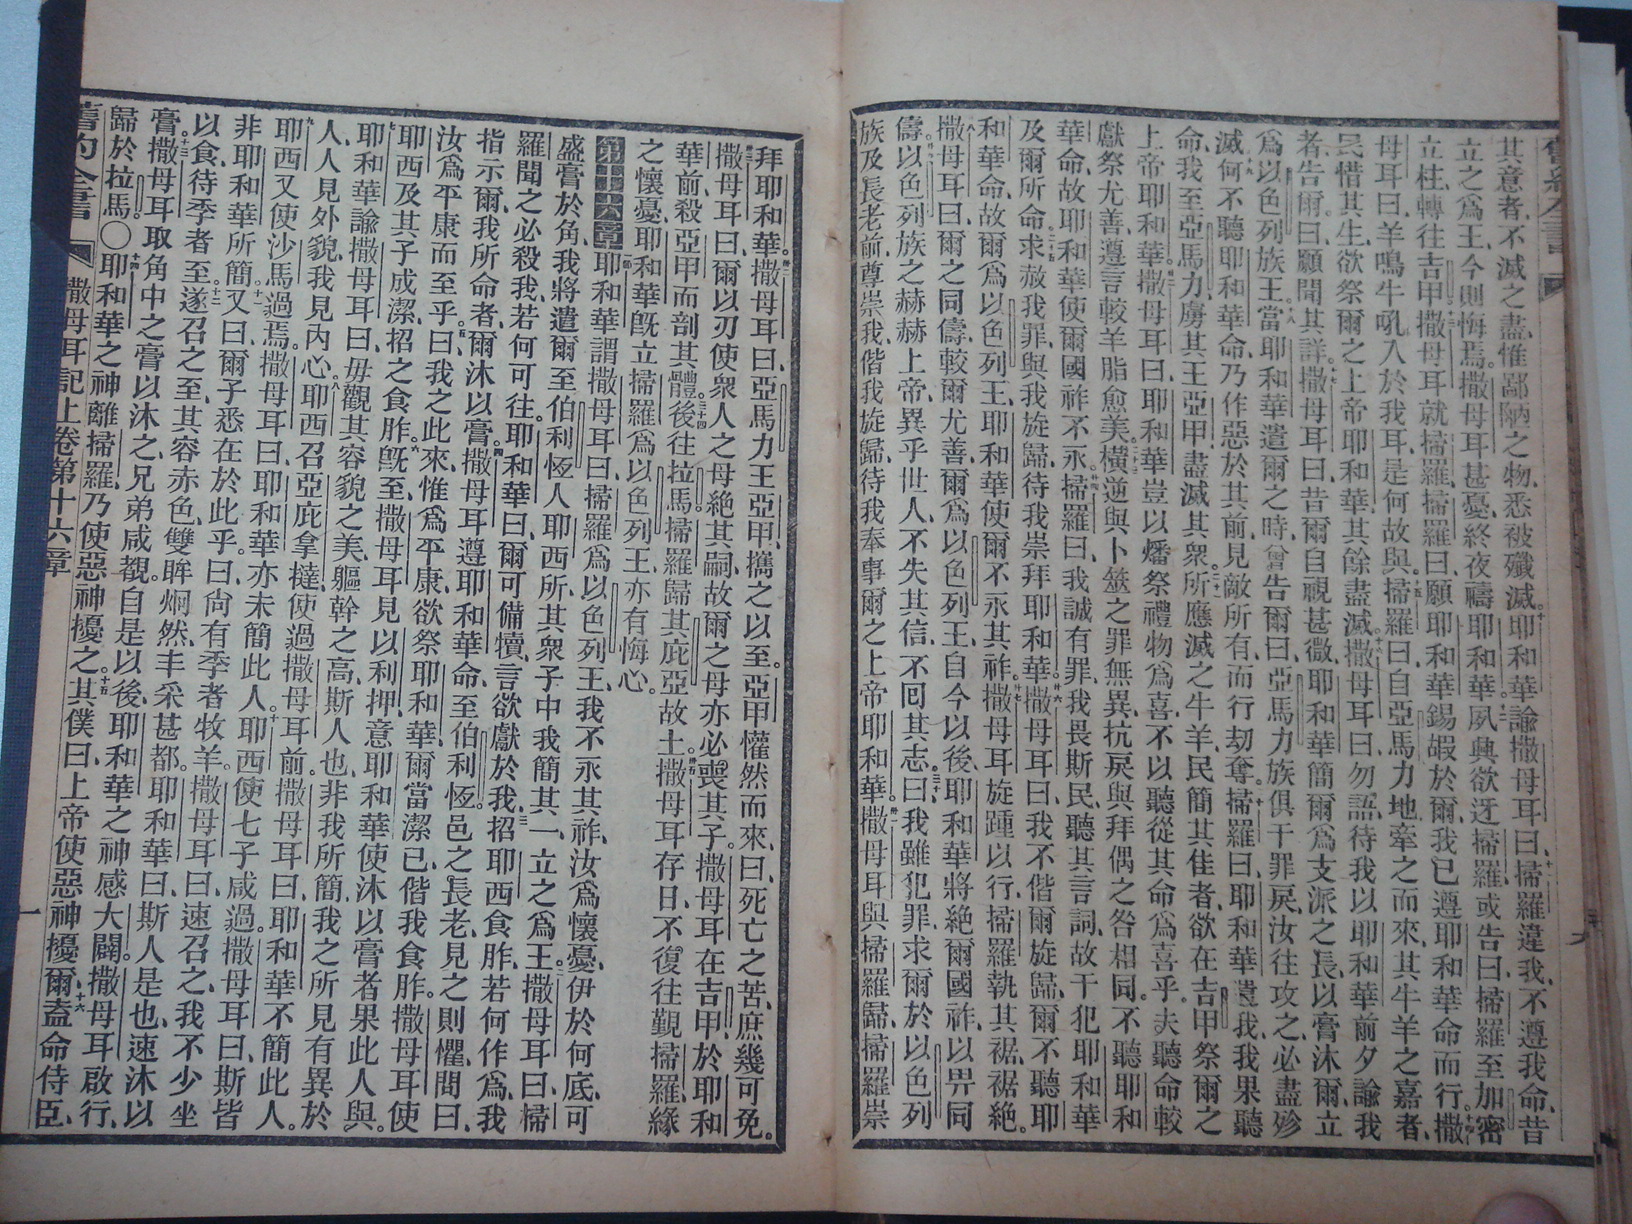 舊約全書
其意者、不滅之盡、惟鄙陋之物、悉被殲滅。十耶和華諭撒母耳曰、十一掃羅違我、不遵我命、昔
立之爲王、今則悔焉。撒母耳甚憂、終夜禱耶和華。十二夙興欲迓掃羅、或告曰、掃羅至加密
立柱、轉往吉甲。十三撒母耳就掃羅、掃羅曰、願耶和華錫嘏於爾、我已遵耶和華命而行。撒
母耳曰、羊鳴牛吼、入於我耳、是何故與。十五掃羅曰、自亞馬力地牽之而來、其牛羊之嘉者、
民惜其生、欲祭爾之上帝耶和華、其餘盡滅。十六撒母耳曰、勿語、待我以耶和華前夕諭我
者、告爾。曰、願聞其詳。十七撒母耳曰、昔爾自視甚微、耶和華簡爾爲支派之長、以膏沐爾、立
爲以色列族王。十八當耶和華遣爾之時、曾告爾曰、亞馬力族俱干罪戾、汝往攻之、必盡殄
滅、十九何不聽耶和華命、乃作惡於其前、見敵所有、而行劫奪。二十掃羅曰、耶和華遣我、我果聽
命、我至亞馬力、虜其王亞甲、盡滅其衆。所應滅之牛羊、民簡其佳者、欲在吉甲祭爾之
上帝耶和華。撒母耳曰、耶和華豈以燔祭禮物爲喜、不以聽從其命爲喜乎。夫聽命較
獻祭尤善、遵言較羊脂愈美。橫逆與卜筮之罪無異、抗戾與拜偶之咎相同。不聽耶和
華命、故耶和華使爾國祚不永。掃羅曰、我誠有罪、我畏斯民、聽其言詞、故干犯耶和華
及爾所命。求赦我罪、與我旋歸、待我崇拜耶和華。撒母耳曰、我不偕爾旋歸、爾不聽耶
和華命、故爾爲以色列王、耶和華使爾不永其祚。撒母耳旋踵以行、掃羅執其裾、裾絕。
撒母耳曰、爾之同儔、較爾尤善、爾爲以色列王、自今以後、耶和華將絕爾國祚、以畀同
儔。以色列族之赫赫上帝、異乎世人、不失其信、不囘其志。曰、我雖犯罪、求爾於以色列
族及長老前、尊崇我、偕我旋歸、待我奉事爾之上帝耶和華。撒母耳與掃羅歸、掃羅崇
拜耶和華。撒母耳曰、亞馬力王亞甲、攜之以至。亞甲懽然而來、曰、死亡之苦、庶幾可免。
撒母耳曰、爾以刃使衆人之母絕其嗣、故爾之母亦必喪其子。撒母耳在吉甲、於耶和
華前、殺亞甲而剖其體。後往拉馬、掃羅歸其庇亞故土。撒母耳存日、不復往覲掃羅、緣
之懷憂、耶和華旣立掃羅爲以色列王、亦有悔心。
第十六章 一節耶和華謂撒母耳曰、掃羅爲以色列王、我不永其祚、汝爲懷憂、伊於何底、可
盛膏於角、我將遣爾至伯利恆人耶西所、其衆子中、我簡其一、立之爲王。二撒母耳曰、掃
羅聞之必殺我、若何可往。耶和華曰、爾可備犢、言欲獻於我、三招耶西食胙、若何作爲、我
指示爾、我所命者、爾沐以膏。四撒母耳遵耶和華命、至伯利恆。邑之長老、見之則懼、問曰、
汝爲平康而至乎。五曰、我之此來、惟爲平康、欲祭耶和華、爾當潔己、偕我食胙。撒母耳使
耶西及其子成潔、招之食胙。六旣至、撒母耳見以利押、意耶和華使沐以膏者、果此人與。
七耶和華諭撒母耳曰、毋觀其容貌之美、軀幹之高、斯人也、非我所簡、我之所見有異於
人、人見外貌、我見內心。八耶西召亞庇拿撻、使過撒母耳前、撒母耳曰、耶和華不簡此人。
九耶西又使沙馬過焉。撒母耳曰、耶和華亦未簡此人。十耶西使七子咸過。撒母耳曰、斯皆
非耶和華所簡。十一又曰、爾子悉在於此乎。曰、尙有季者牧羊。撒母耳曰、速召之、我不少坐
以食、待季者至。十二遂召之至、其容赤色、雙眸炯然、丰采甚都。耶和華曰、斯人是也、速沐以
膏。十三撒母耳取角中之膏以沐之、兄弟咸覩。自是以後、耶和華之神感大闢。撒母耳啟行、
歸於拉馬。〇十四耶和華之神離掃羅、乃使惡神擾之。十五其僕曰、上帝使惡神擾爾、十六盍命侍臣、
舊約全書 撒母耳記上卷第十六章 一